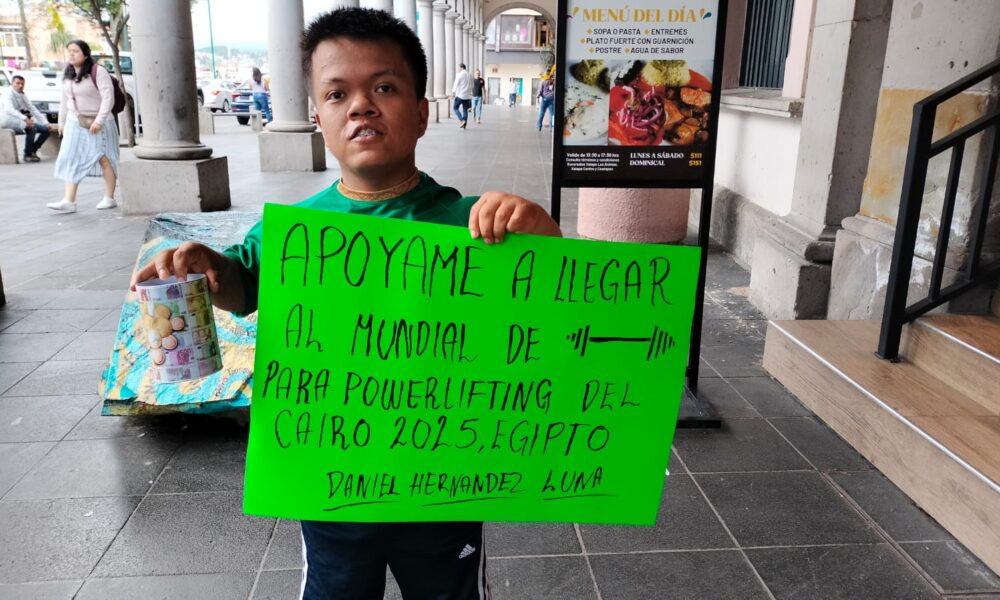 APOYAME A LLEGAR
AL MUNDIAL DE
PARA POWERLIFTING DEL
CAIRO 2025, EGIPTO
DANIEL HERNANDEZ LUNA
MENÚ DEL DÍA
SOPA O PASTA ENTREMÉS
PLATO FUERTE CON GUARNICIÓN
POSTRE AGUA DE SABOR
LUNES A SÁBADO $111
DOMINICAL $151
adidas